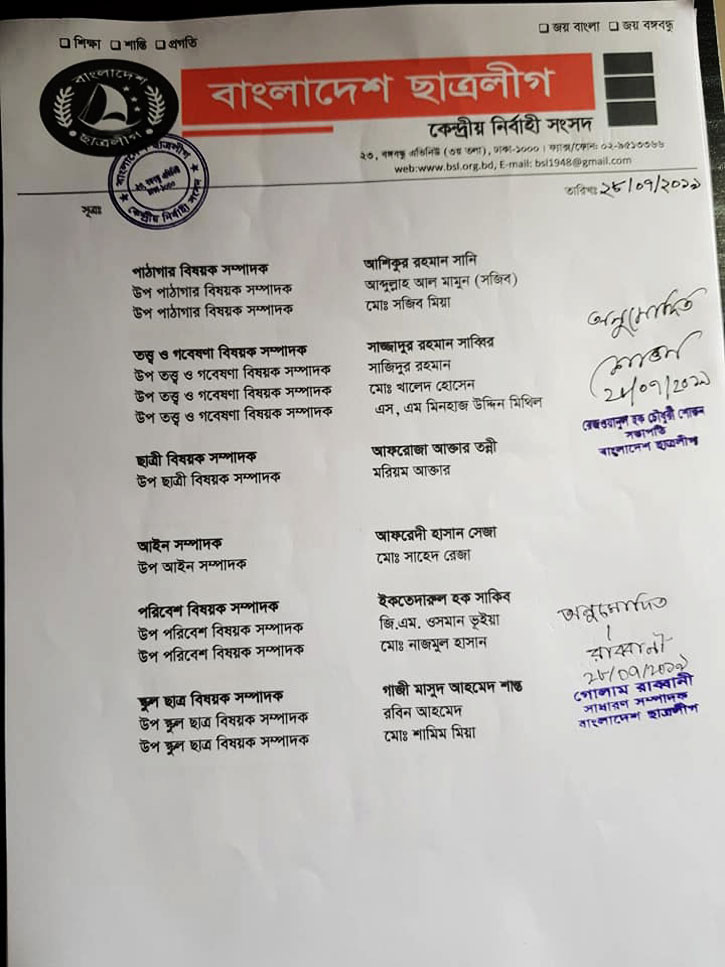 □ শিক্ষা □ শান্তি □ প্রগতি
□ জয় বাংলা □ জয় বঙ্গবন্ধু
বাংলাদেশ
ছাত্রলীগ
বাংলাদেশ ছাত্রলীগ
কেন্দ্রীয় নির্বাহী সংসদ
২৩, বঙ্গবন্ধু এভিনিউ (৩য় তলা), ঢাকা-১০০০ । ফ্যাক্স/ফোন: ০২-৯৫১৩৩৬৬
web:www.bsl.org.bd, E-mail: bsl1948@gmail.com
বাংলাদেশ ছাত্রলীগ
২৩, বঙ্গবন্ধু এভিনিউ
ঢাকা-১০০০
কেন্দ্রীয় নির্বাহী সংসদ
সূত্রঃ
তারিখঃ ২৮/০৭/২০১৯
পাঠাগার বিষয়ক সম্পাদক আশিকুর রহমান সানি
উপ পাঠাগার বিষয়ক সম্পাদক আব্দুল্লাহ আল মামুন (সজিব)
উপ পাঠাগার বিষয়ক সম্পাদক মোঃ সজিব মিয়া
তত্ত্ব ও গবেষণা বিষয়ক সম্পাদক সাজ্জাদুর রহমান সাব্বির
উপ তত্ত্ব ও গবেষণা বিষয়ক সম্পাদক সাজিদুর রহমান
উপ তত্ত্ব ও গবেষণা বিষয়ক সম্পাদক মোঃ খালেদ হোসেন
উপ তত্ত্ব ও গবেষণা বিষয়ক সম্পাদক এস, এম মিনহাজ উদ্দিন মিথিল
অনুমোদিত
শোভন
২৮/০৭/২০১৯
রেজওয়ানুল হক চৌধুরী শোভন
সভাপতি
বাংলাদেশ ছাত্রলীগ
ছাত্রী বিষয়ক সম্পাদক আফরোজা আক্তার তন্নী
উপ ছাত্রী বিষয়ক সম্পাদক মরিয়ম আক্তার
আইন সম্পাদক আফরেদী হাসান সেজা
উপ আইন সম্পাদক মোঃ সাহেদ রেজা
পরিবেশ বিষয়ক সম্পাদক ইকতেদারুল হক সাকিব
উপ পরিবেশ বিষয়ক সম্পাদক জি.এম. ওসমান ভূইয়া
উপ পরিবেশ বিষয়ক সম্পাদক মোঃ নাজমুল হাসান
অনুমোদিত
রাব্বানী
২৮/০৭/২০১৯
গোলাম রাব্বানী
সাধারণ সম্পাদক
বাংলাদেশ ছাত্রলীগ
স্কুল ছাত্র বিষয়ক সম্পাদক গাজী মাসুদ আহমেদ শান্ত
উপ স্কুল ছাত্র বিষয়ক সম্পাদক রবিন আহমেদ
উপ স্কুল ছাত্র বিষয়ক সম্পাদক মোঃ শামিম মিয়া